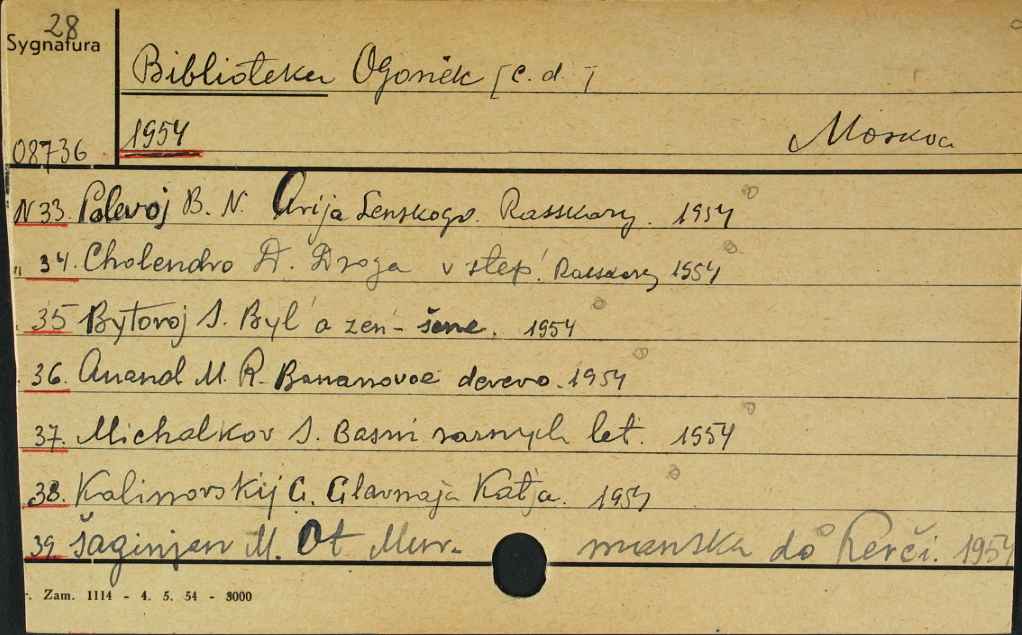 28
Sygnatura
Biblioteka Ogonëk [c. d.]
1954 Moskva
08736
N 33. Polevoj B. N. Arija Lenskogo. Rasskazy. 1954
" 34. Cholendro D. Droga v step'. Rasskazy 1954
35 Bytovoj S. Byl' o žen'-šene. 1954
36. Anand M. R. Bananovoe derevo. 1954
37. Michalkov S. Basni raznych let. 1954
38. Kalinovskij G. Glavnaja Katja. 1954
39 Šaginjan M. Ot Mur- manska do Kerči. 1954
Zam. 1114 - 4. 5. 54 - 3000